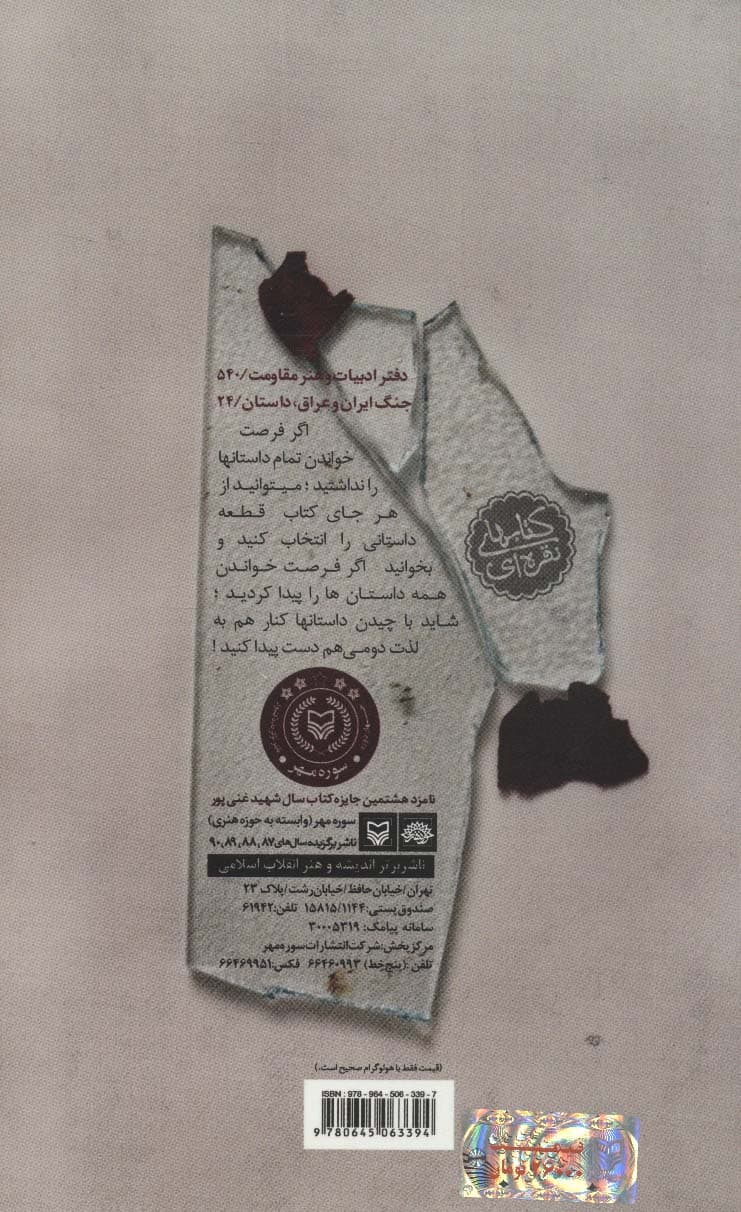 دفتر ادبیات و هنر مقاومت/۵۴۰
جنگ ایران و عراق، داستان/۲۴
اگر فرصت
خواندن تمام داستانها
را نداشتید ؛ میتوانید از
هر جای کتاب قطعه
داستانی را انتخاب کنید و
بخوانید اگر فرصت خواندن
همه داستان ها را پیدا کردید ؛
شاید با چیدن داستانها کنار هم به
لذت دومی هم دست پیدا کنید !
کتابهای
نقره‌ای
سوره مهر
نامزد هشتمین جایزه کتاب سال شهید غنی پور
سوره مهر (وابسته به حوزه هنری)
ناشر برگزیده سال های ۸۷، ۸۸، ۸۹، ۹۰
ناشر برتر اندیشه و هنر انقلاب اسلامی
تهران/خیابان حافظ/خیابان رشت/پلاک ۲۳
صندوق پستی: ۱۵۸۱۵/۱۱۴۴ تلفن: ۶۱۹۴۲
سامانه پیامک: ۳۰۰۰۵۳۱۹
مرکز پخش: شرکت انتشارات سوره مهر
تلفن: (پنج خط) ۶۶۴۶۰۹۹۳ فکس: ۶۶۴۶۹۹۵۱
(قیمت فقط با هولوگرام صحیح است.)
ISBN : 978 - 964 - 506 - 339 - 7
9 780645 063394
۲۶۰۰۰ تومان